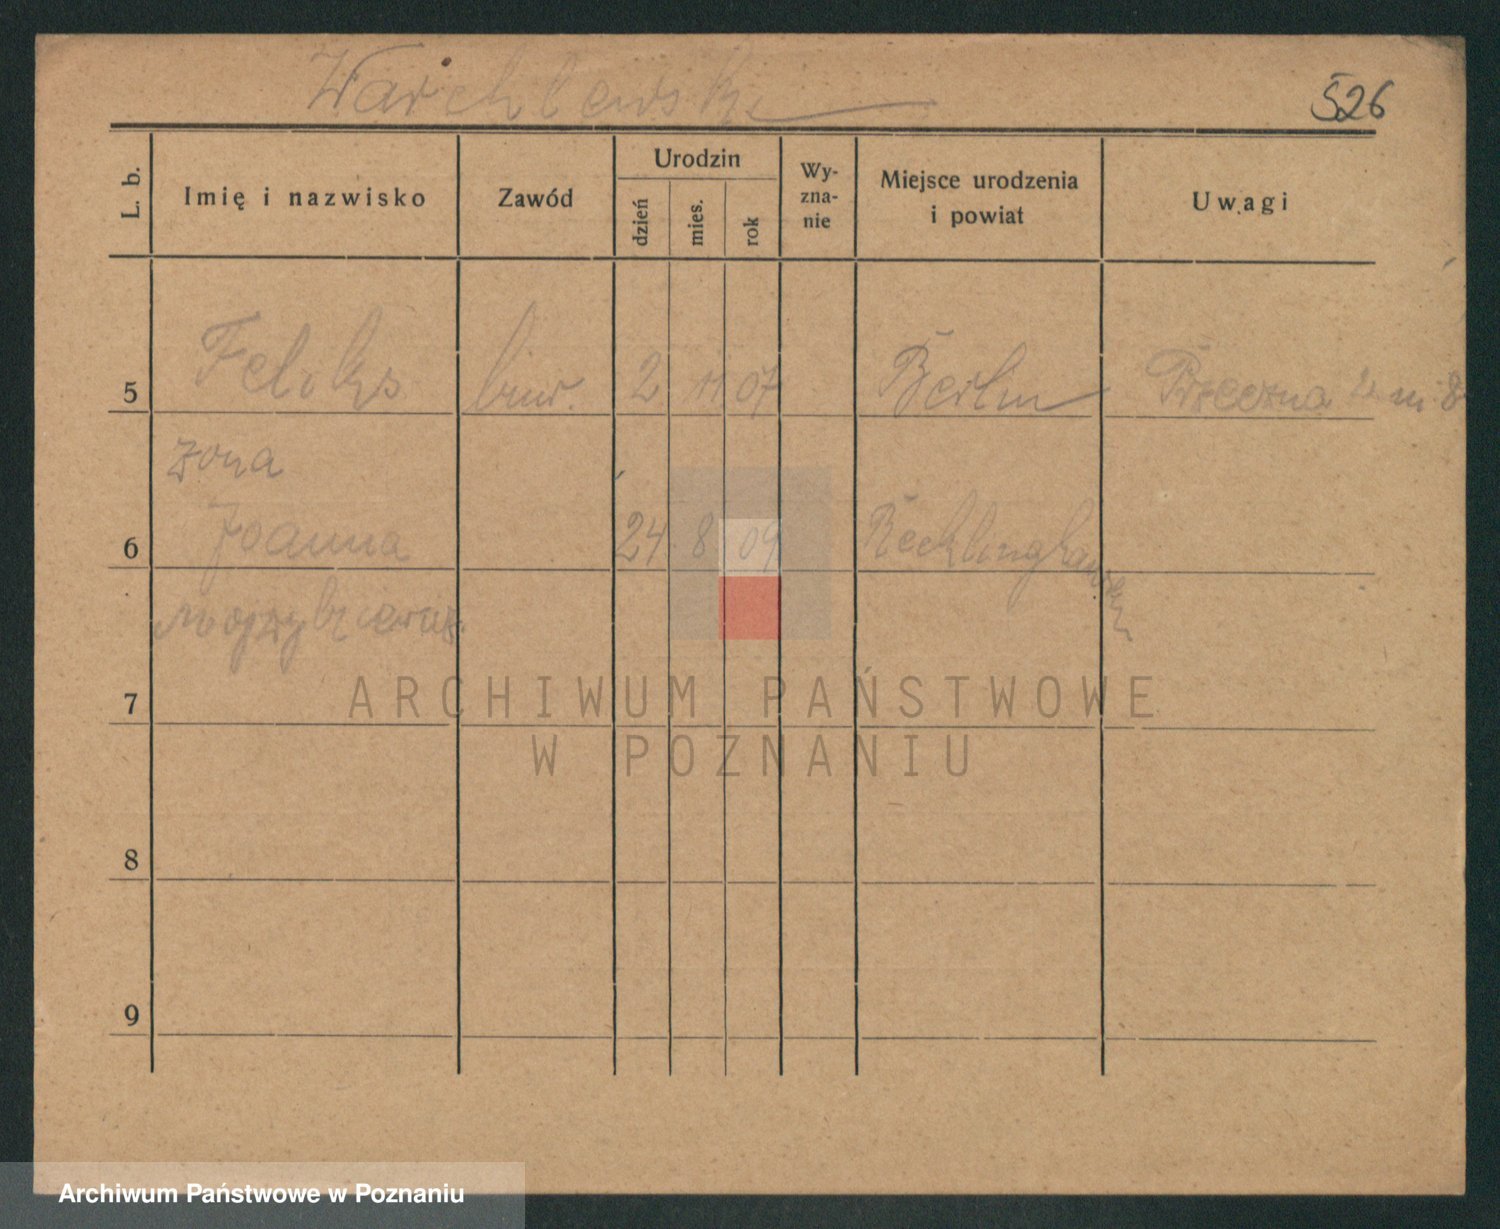 Warchlewski
526
L. b.
Imię i nazwisko
Zawód
Urodzin
dzień
mies.
rok
Wy-
zna-
nie
Miejsce urodzenia
i powiat
Uwagi
5 Feliks biur. 2 11 07 Berlin Przeczna 2 m 8
żona
6 Joanna 24 8 09 Recklinghausen
7
8
9
ARCHIWUM PAŃSTWOWE
W POZNANIU
Archiwum Państwowe w Poznaniu